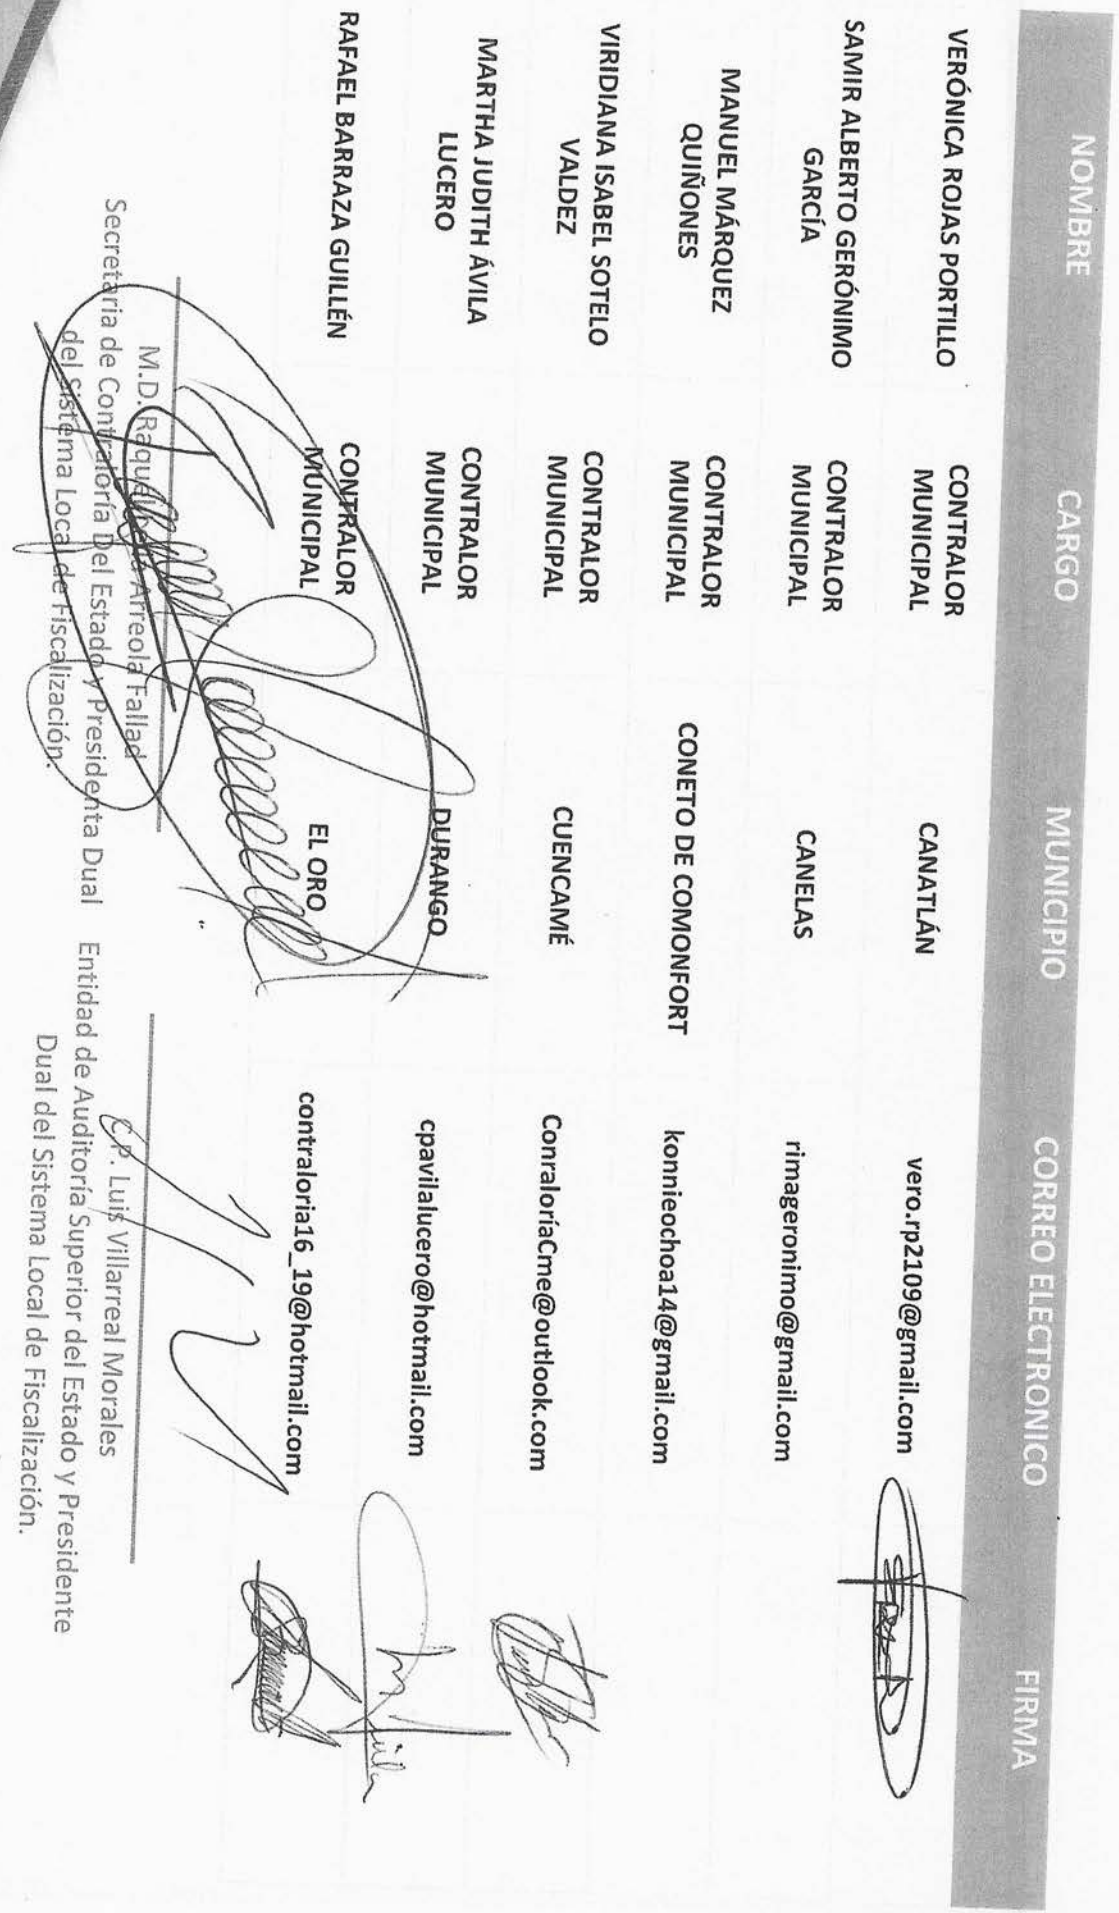 NOMBRE CARGO MUNICIPIO CORREO ELECTRONICO FIRMA
VERÓNICA ROJAS PORTILLO CONTRALOR MUNICIPAL CANATLÁN vero.rp2109@gmail.com
SAMIR ALBERTO GERÓNIMO GARCÍA CONTRALOR MUNICIPAL CANELAS rimageronimo@gmail.com
MANUEL MÁRQUEZ QUIÑONES CONTRALOR MUNICIPAL CONETO DE COMONFORT konnieochoa14@gmail.com
VIRIDIANA ISABEL SOTELO VALDEZ CONTRALOR MUNICIPAL CUENCAMÉ ConraloríaCme@outlook.com
MARTHA JUDITH ÁVILA LUCERO CONTRALOR MUNICIPAL DURANGO cpavilalucero@hotmail.com
RAFAEL BARRAZA GUILLÉN CONTRALOR MUNICIPAL EL ORO contraloria16_19@hotmail.com
M.D. Raquel Arreola Fallad
Secretaria de Contraloría Del Estado y Presidenta Dual
del Sistema Local de Fiscalización.
C.P. Luis Villarreal Morales
Entidad de Auditoría Superior del Estado y Presidente
Dual del Sistema Local de Fiscalización.